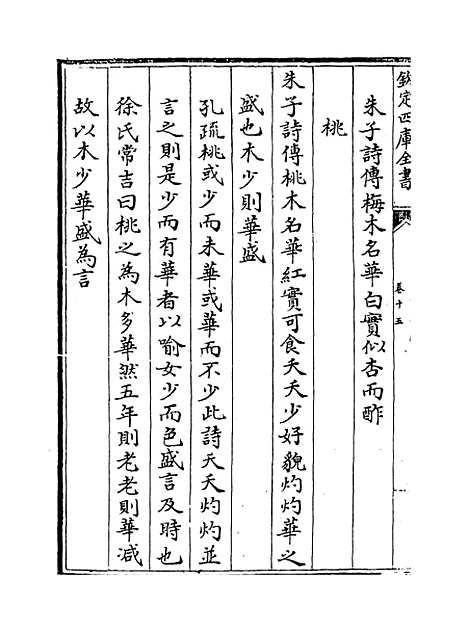 欽定四庫全書
卷十五
朱子詩傳梅木名華白實似杏而酢
桃
朱子詩傳桃木名華紅實可食夭夭少好貌灼灼華之
盛也木少則華盛
孔疏桃或少而未華或華而不少此詩夭夭灼灼並
言之則是少而有華者以喻女少而色盛言及時也
徐氏常吉曰桃之為木多華然五年則老老則華減
故以木少華盛為言